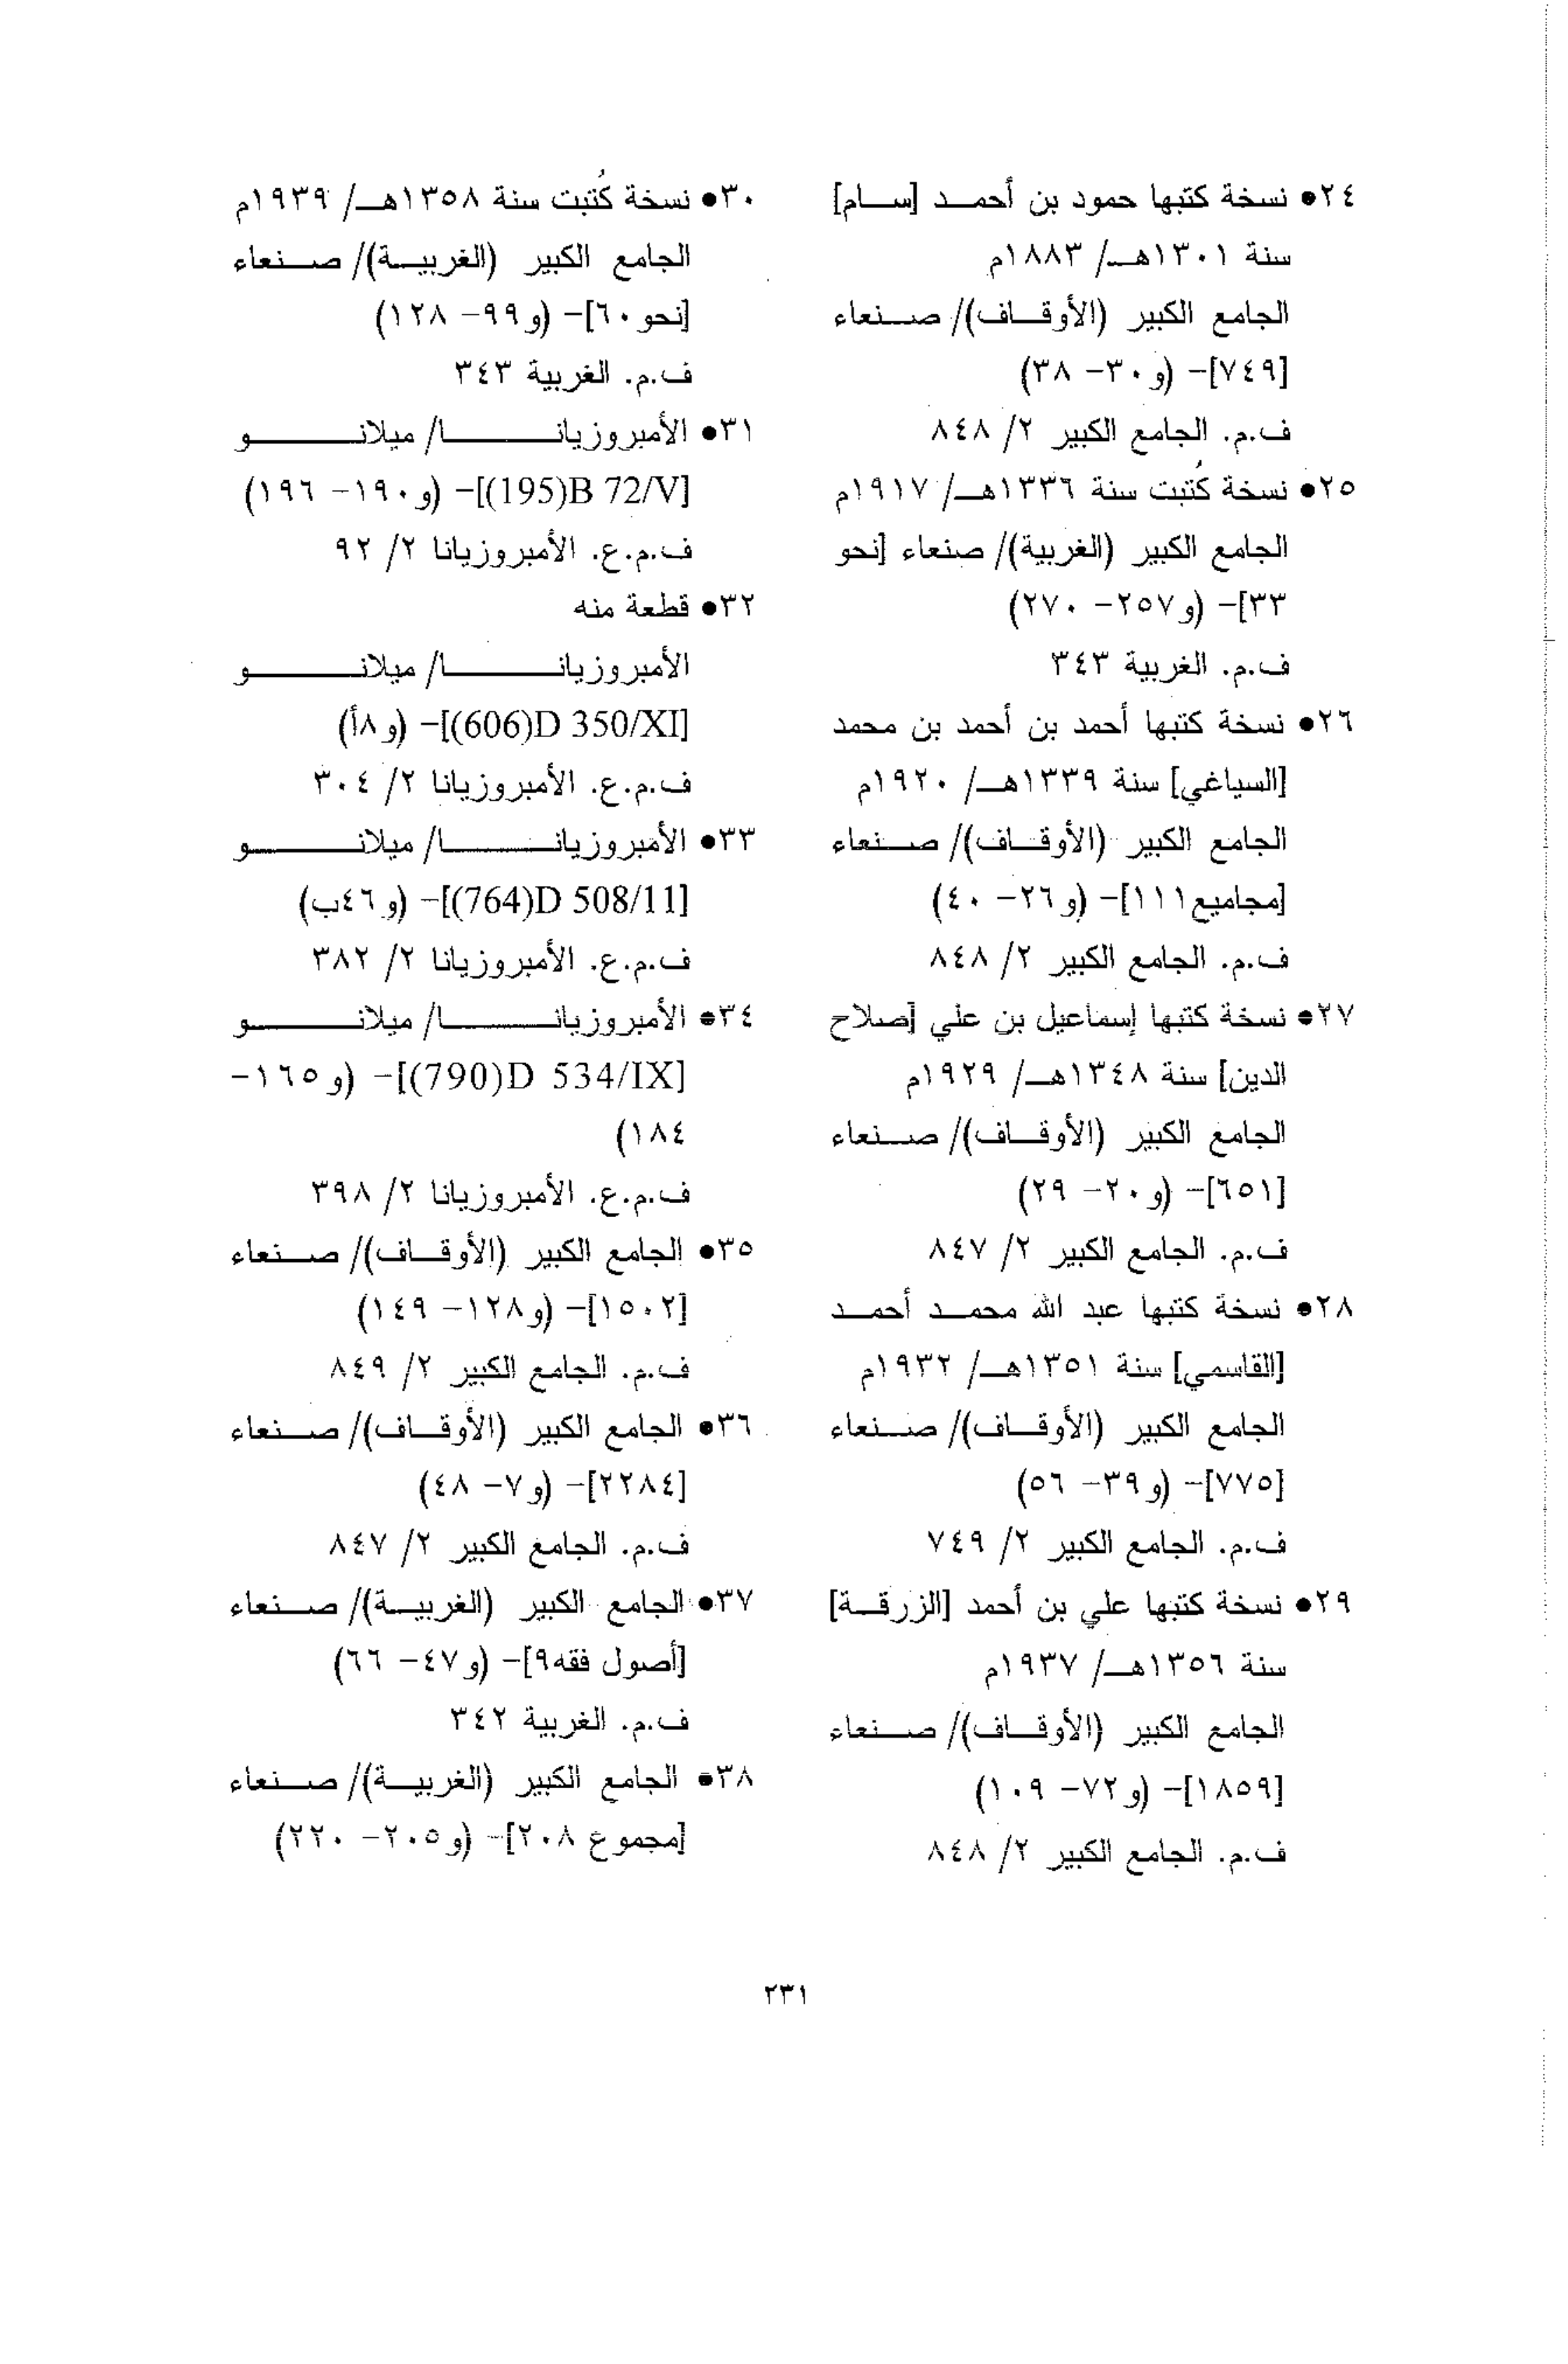 ٢٤• نسخة كتبها حمود بن أحمد [سام]
سنة ١٣٠١هـ/ ١٨٨٣م
الجامع الكبير (الأوقاف)/ صنعاء
[٧٤٩]- (و٣٠- ٣٨)
ف.م. الجامع الكبير ٢/ ٨٤٨
٢٥• نسخة كُتبت سنة ١٣٣٦هـ/ ١٩١٧م
الجامع الكبير (الغربية)/ صنعاء [نحو
٣٣]- (و٢٥٧- ٢٧٠)
ف.م. الغربية ٣٤٣
٢٦• نسخة كتبها أحمد بن أحمد بن محمد
[السياغي] سنة ١٣٣٩هـ/ ١٩٢٠م
الجامع الكبير (الأوقاف)/ صنعاء
[مجاميع١١١]- (و٢٦- ٤٠)
ف.م. الجامع الكبير ٢/ ٨٤٨
٢٧• نسخة كتبها إسماعيل بن علي [صلاح
الدين] سنة ١٣٤٨هـ/ ١٩٢٩م
الجامع الكبير (الأوقاف)/ صنعاء
[٦٥١]- (و٢٠- ٢٩)
ف.م. الجامع الكبير ٢/ ٨٤٧
٢٨• نسخة كتبها عبد الله محمد أحمد
[القاسمي] سنة ١٣٥١هـ/ ١٩٣٢م
الجامع الكبير (الأوقاف)/ صنعاء
[٧٧٥]- (و٣٩- ٥٦)
ف.م. الجامع الكبير ٢/ ٧٤٩
٢٩• نسخة كتبها علي بن أحمد [الزرقة]
سنة ١٣٥٦هـ/ ١٩٣٧م
الجامع الكبير (الأوقاف)/ صنعاء
[١٨٥٩]- (و٧٢- ١٠٩)
ف.م. الجامع الكبير ٢/ ٨٤٨
٣٠• نسخة كُتبت سنة ١٣٥٨هـ/ ١٩٣٩م
الجامع الكبير (الغربية)/ صنعاء
[نحو٦٠]- (و٩٩- ١٢٨)
ف.م. الغربية ٣٤٣
٣١• الأمبروزيانا/ ميلانو
[195)B 72/V)]- (و١٩٠- ١٩٦)
ف.م.ع. الأمبروزيانا ٢/ ٩٢
٣٢• قطعة منه
الأمبروزيانا/ ميلانو
[606)D 350/XI)]- (و٨أ)
ف.م.ع. الأمبروزيانا ٢/ ٣٠٤
٣٣• الأمبروزيانا/ ميلانو
[764)D 508/11)]- (و٤٦ب)
ف.م.ع. الأمبروزيانا ٢/ ٣٨٢
٣٤• الأمبروزيانا/ ميلانو
[790)D 534/IX)]- (و١٦٥-
١٨٤)
ف.م.ع. الأمبروزيانا ٢/ ٣٩٨
٣٥• الجامع الكبير (الأوقاف)/ صنعاء
[١٥٠٢]- (و١٢٨- ١٤٩)
ف.م. الجامع الكبير ٢/ ٨٤٩
٣٦• الجامع الكبير (الأوقاف)/ صنعاء
[٢٢٨٤]- (و٧- ٤٨)
ف.م. الجامع الكبير ٢/ ٨٤٧
٣٧• الجامع الكبير (الغربية)/ صنعاء
[أصول فقه٩]- (و٤٧- ٦٦)
ف.م. الغربية ٣٤٢
٣٨• الجامع الكبير (الغربية)/ صنعاء
[مجموع ٢٠٨]- (و٢٠٥- ٢٢٠)
٢٣١